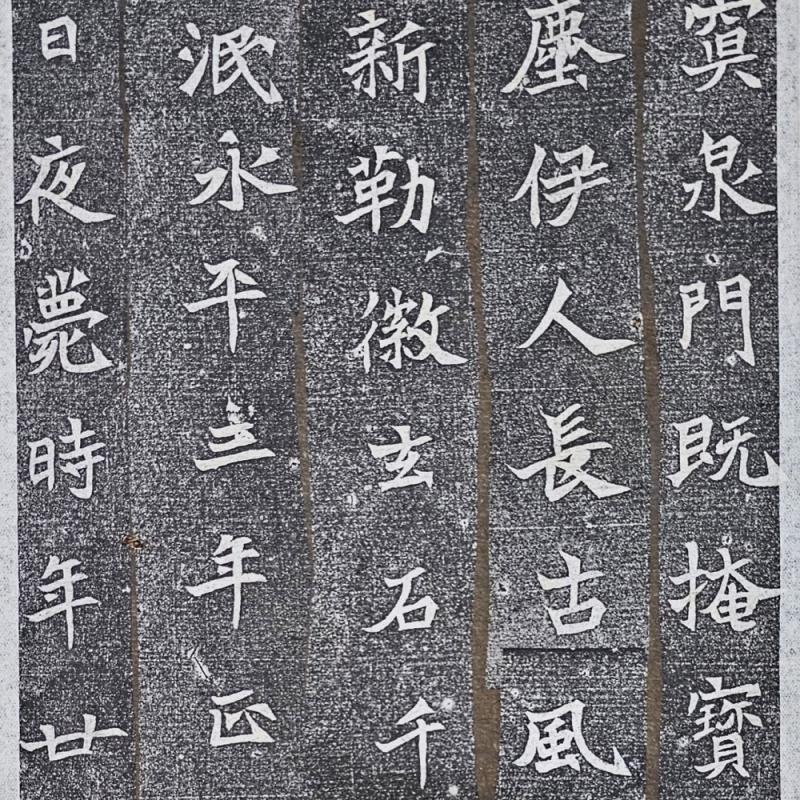 寞泉門既掩寶
塵伊人長古風
新勒徽玄石千
泯永平三年正
日夜薨時年廿